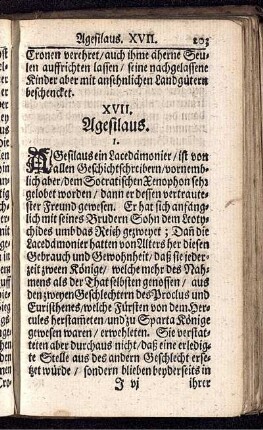 Agesilaus. XVII. 203
Cronen verehret / auch ihme äherne Seu-
len auffrichten lassen / seine nachgelassene
Kinder aber mit ansehnlichen Landgütern
beschencket.
XVII.
Agesilaus.
I.
AGesilaus ein Lacedämonier / ist von
allen Geschichtschreibern / vornemb-
lich aber / dem Socratischen Xenophon sehr
gelobet worden / dann er dessen vertraute-
ster Freund gewesen. Er hat sich anfäng-
lich mit seines Brudern Sohn dem Leoty-
chides umb das Reich gezweyet ; Dañ die
Lacedämonier hatten von Alters her diesen
Gebrauch und Gewohnheit / daß sie jeder-
zeit zween Könige / welche mehr des Nah-
mens als der That selbsten genossen / aus
den zweyen Geschlechtern des Proclus und
Euristhenes / welche Fürsten von dem Her-
cules herstam̃eten / und zu Sparta Könige
gewesen waren / erwehleten. Sie verstat-
teten aber durchaus nicht / daß eine erledig-
te Stelle aus des andern Geschlecht erse-
tzet würde / sondern blieben beyderseits in
J vj ihrer